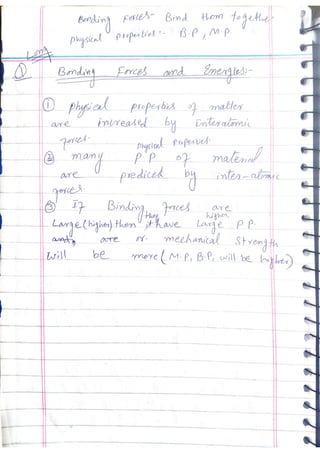 Bonding Forces:- Bind them together.
physical properties:- B.P, M.P
Long
① Bonding Forces and Energies:-
① physical properties of matter
are increased by Interatomic
forces.
physical properties
② many P.P of material
are prediced by inter-atomic
forces.
③ If Binding forces are
they higher
Large (higher) then it have Large P.P.
and are or mechanical Strength
will be more (M.P, B.P, will be higher)